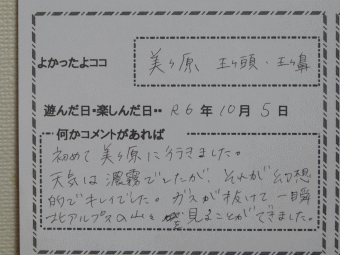 よかったよココ 美ヶ原 王ヶ頭・王ヶ鼻
遊んだ日・楽しんだ日・・ R6 年 10 月 5 日
何かコメントがあれば
初めて美ヶ原に行きました。
天気は濃霧でしたが、それが幻想
的でキレイでした。ガスが抜けて一瞬
北アルプスの山を 見ることができました。